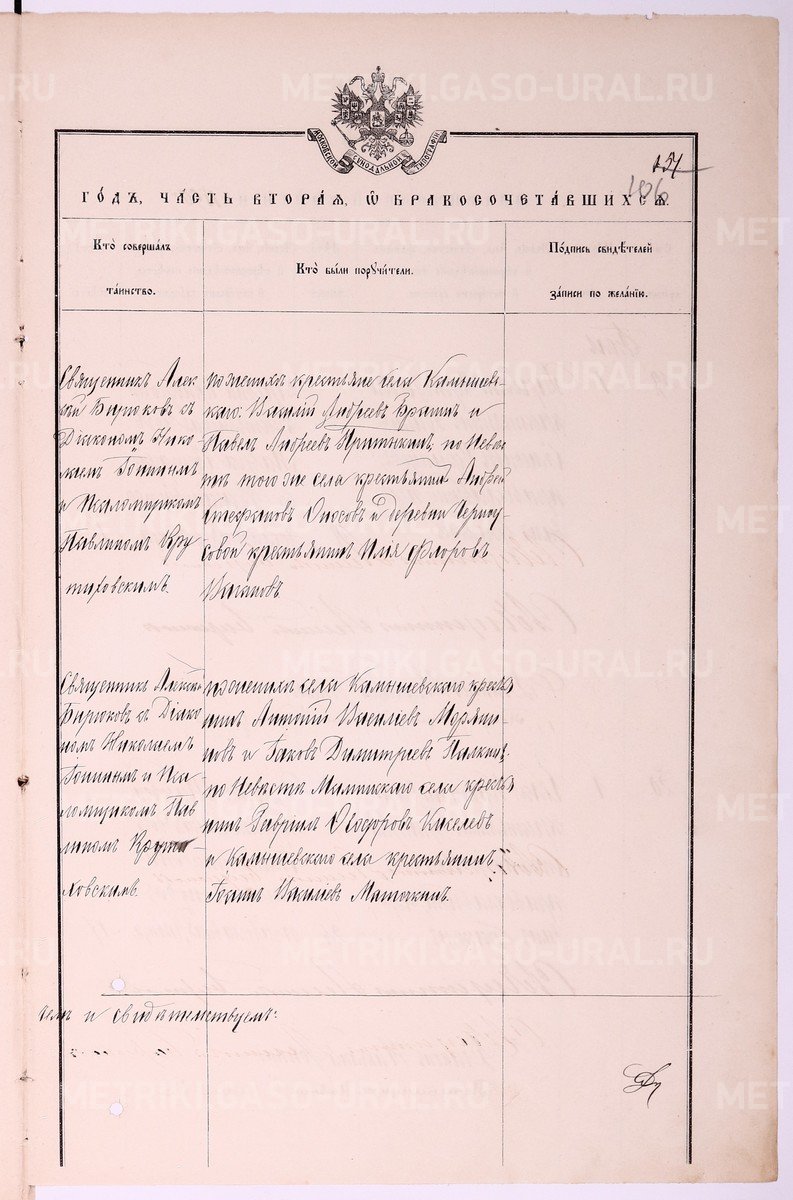 МОСКОВСКОЙ СѴНОДАЛЬНОЙ ТИПОГРАФІИ
151
106
ГО́ДЪ, ЧА́СТЬ ВТОРА́Я, Ѡ҆ БРАКОСОЧЕТА́ВШИХСЯ
Кто̀ соверша́лъ
та́инство.
Кто̀ бы́ли порꙋчи́тели.
По́дпись свидѣ́телей
за́писи по жела́нїю.
Священникъ Алек-
сій Бирюковъ съ
Діакономъ Нико-
лаемъ
и Псаломщикомъ
Павлиномъ Кру-
тиховскимъ.
по женихѣ крестьяне села Камышев-
скаго: Василій Андреевъ Брагинъ и
Павелъ Андреевъ по Невѣс-
тѣ того же села крестьянинъ Андрей
Стефановъ Оносовъ и деревни Черноу-
совой крестьянинъ Илія Флоровъ
Вагановъ
Священникъ Алексій
Бирюковъ съ Діако-
номъ Николаемъ
и Пса-
ломщикомъ Пав-
линомъ Крути-
ховскимъ.
по женихѣ села Камышевскаго кресть-
янинъ Антоній Василіевъ
и Іаковъ Димитріевъ Палкинъ,
по Невѣстѣ Маминскаго села кресть-
янинъ Гавріилъ Ѳеодоровъ Киселевъ
и Камышевскаго села крестьянинъ
Іоаннъ Василіевъ Маточкинъ.
чемъ и свидѣтельствуемъ:
METRIKI.GASO-URAL.RU